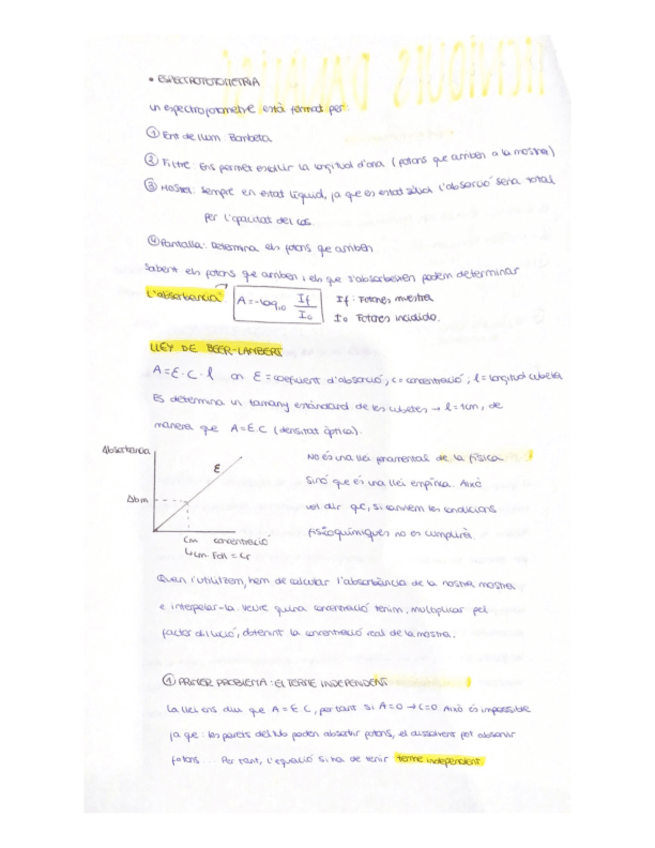 • ESPECTROFOTOMETRIA
Un espectrofotòmetre està format per:
① Font de llum. Bombeta
② Filtre: Ens permet escollir la longitud d'ona (fotons que arriben a la mostra)
③ Mostra: sempre en estat líquid, ja que en estat sòlid l'absorció seria total
per l'opacitat del cos.
④ Pantalla: Determina els fotons que arriben
Sabent els fotons que arriben i els que s'absorbeixen podem determinar
l'absorbancia A=-log₁₀ If/I₀ If: Fotones muestra
I₀ Fotones incidido.
LLEY DE BEER-LAMBERT
A=Ɛ·C·l on Ɛ=coeficient d'absorció, c=concentració; l=longitud cubeta
Es determina un tamany estàndard de les cubetes → l=1cm, de
manera que A=Ɛ.C (densitat òptica).
Absorbancia
Ɛ
Abm
Cm concentració
↳Cm·Fdil = Cr
No és una llei fonamental de la física
sinó que és una llei empírica. Això
vol dir que, si canviem les condicions
fisicoquímiques no es cumplirà.
Quan l'utilitzem, hem de calcular l'absorbància de la nostra mostra
e interpolar-la. Veure quina concentració tenim, multiplicar pel
factor dilució, obtenint la concentració real de la mostra.
① PRIMER PROBLEMA: El TERME INDEPENDENT
La llei ens diu que A=Ɛ C, per tant si A=0 → C=0 Això és impossible
ja que: les parets del tub poden absorbir fotons, el dissolvent pot absorvir
fotons... Per tant, l'equació si ha de tenir terme independent